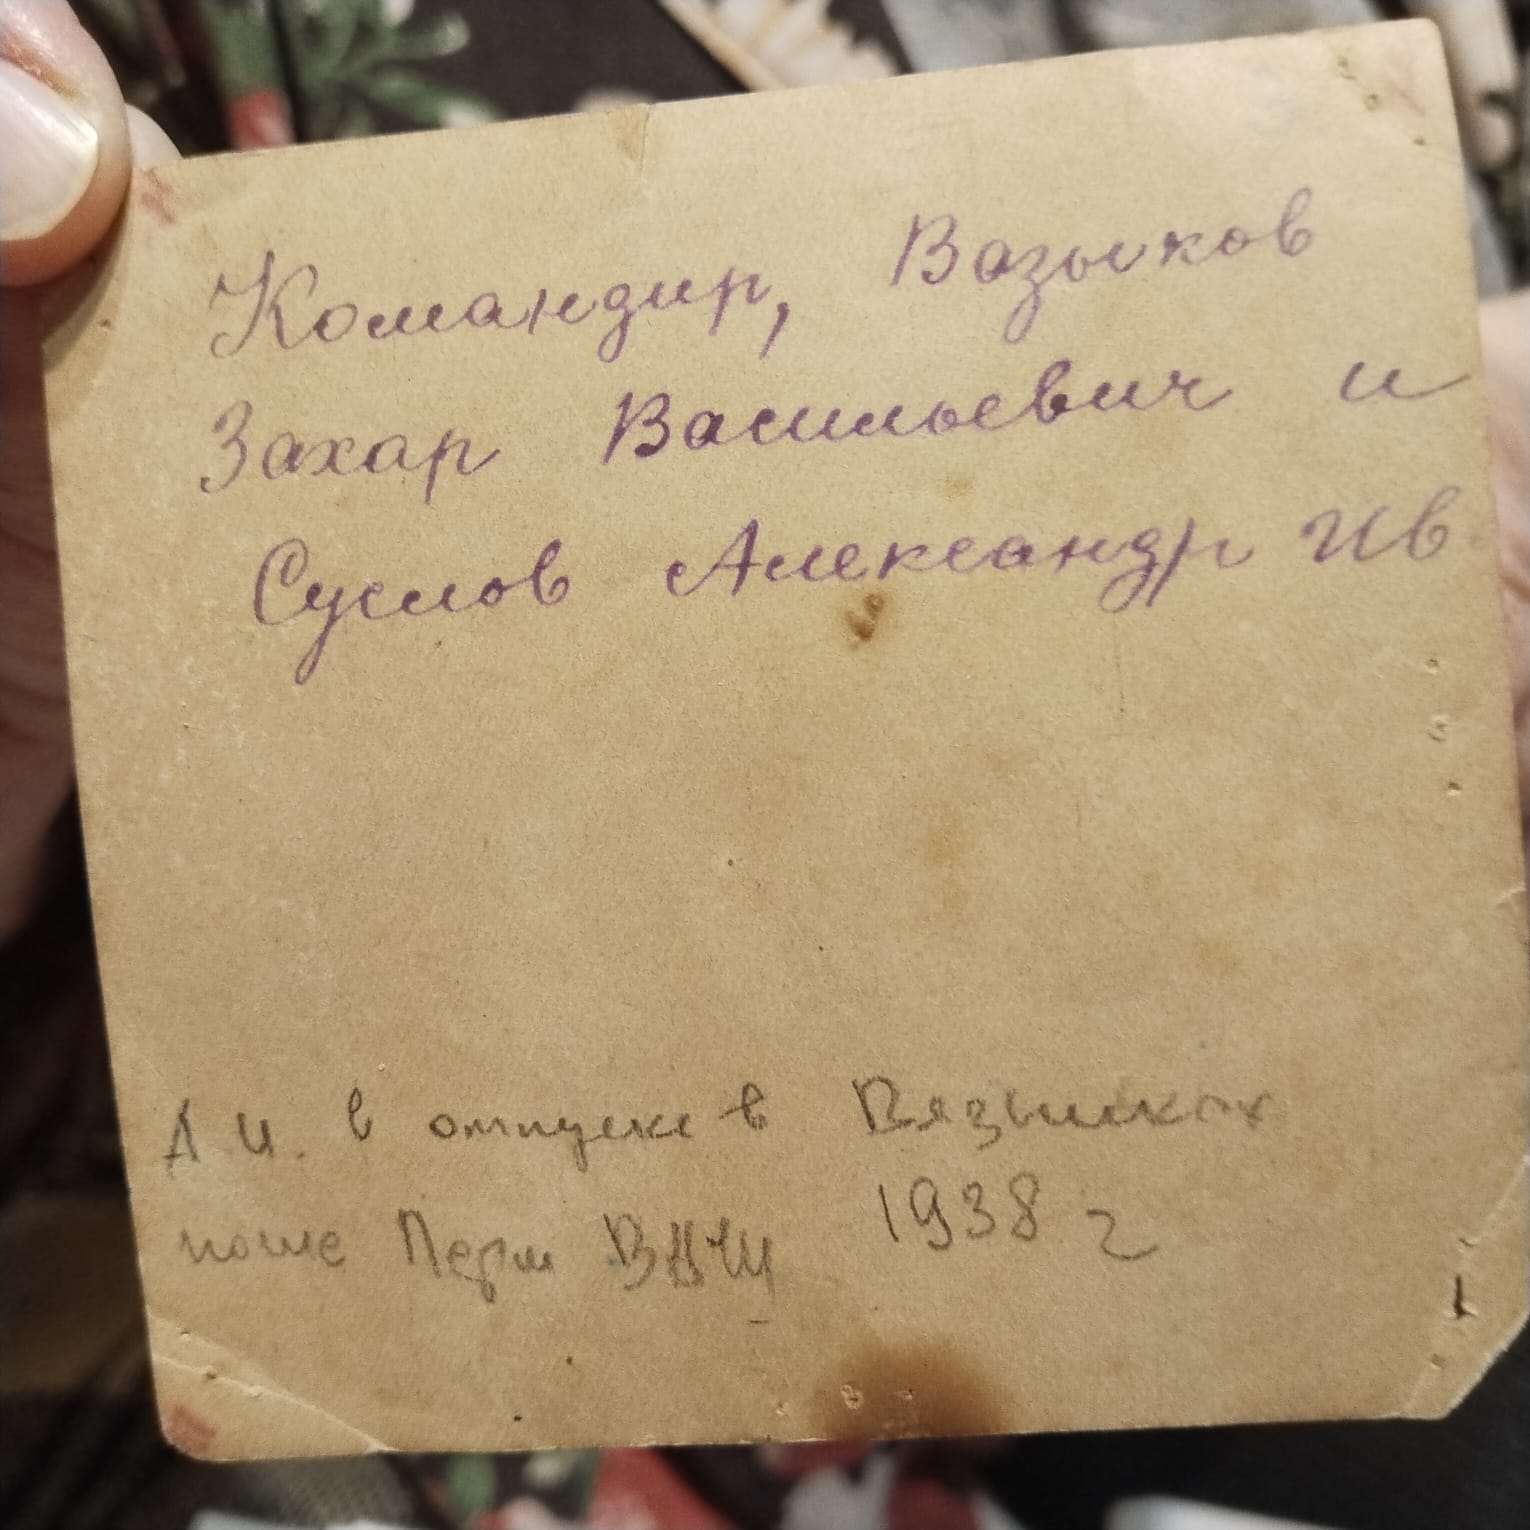 Командир, Вазыков
Захар Васильевич и
Суслов Александр Ив.
А И. в отпуске в Вязниках
после Перм ВАЧЩ 1938 г